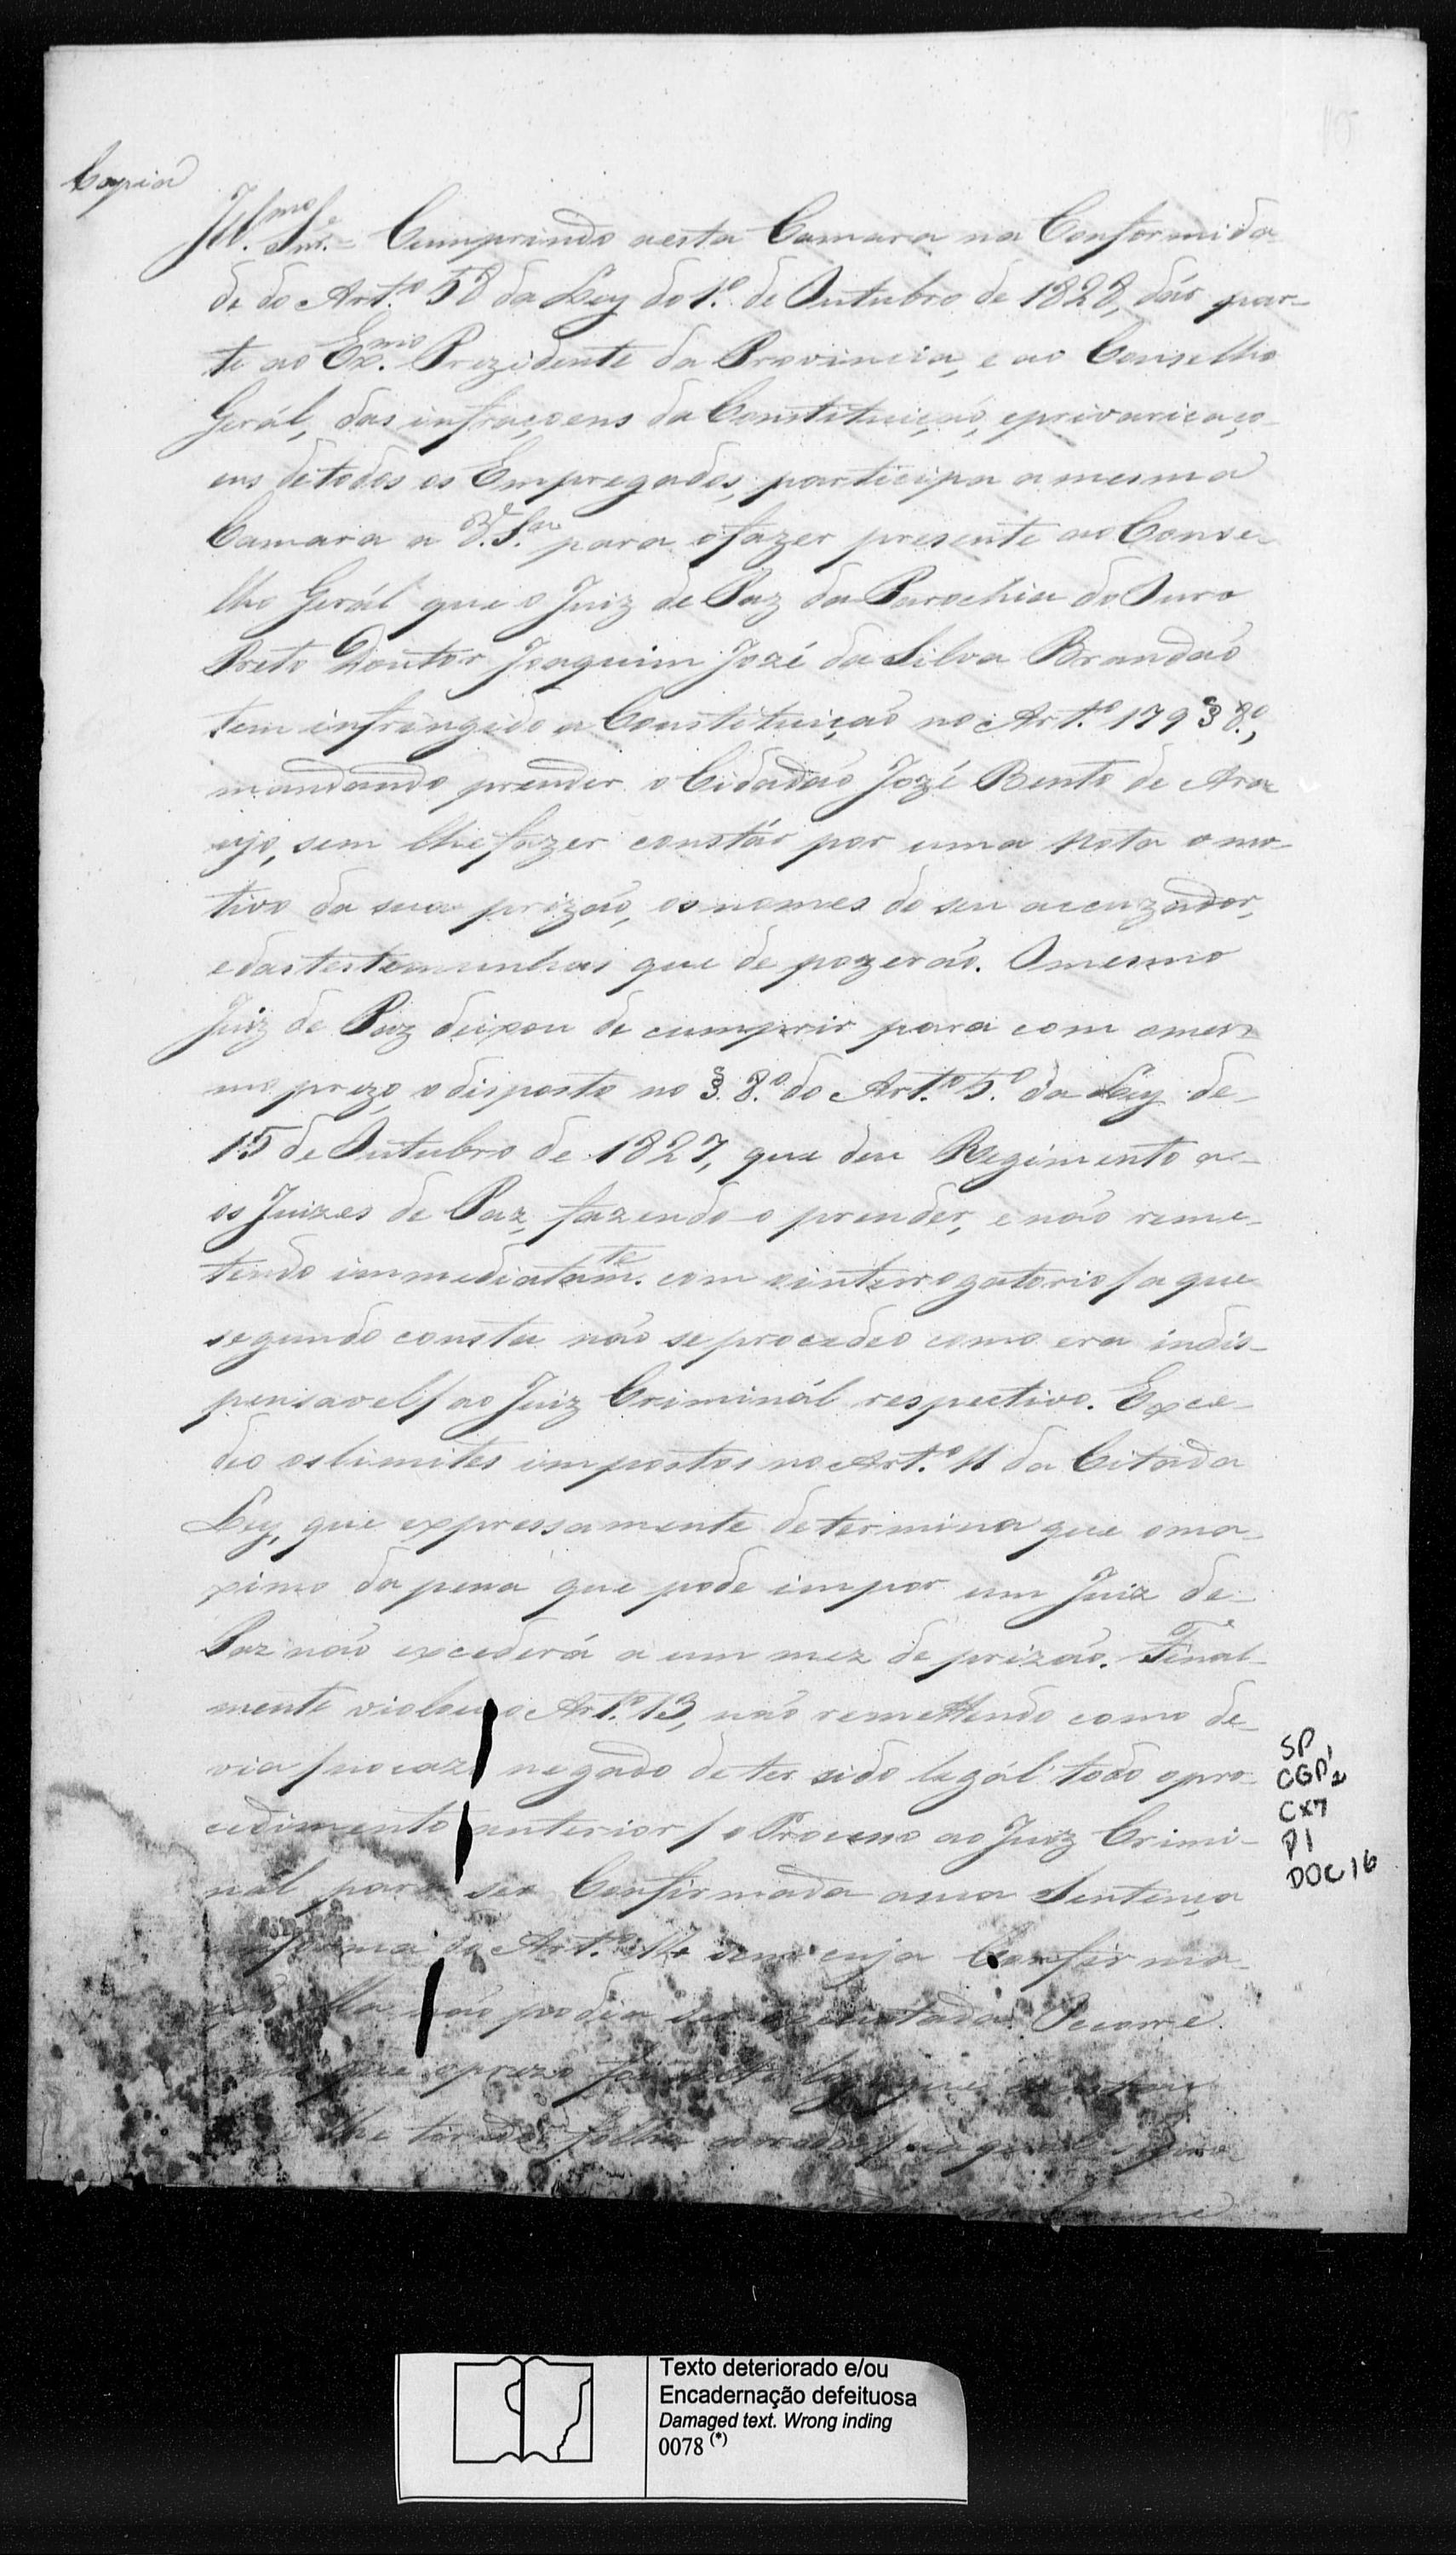 Copia
Ill.mo Snr.= Cumprindo aesta Camara na Conformida
de do Art.º 58 da Ley do 1.º de Outubro de 1828, dár par-
te ao Ex.mo Prezidente da Provincia, e ao Conselho
Gerál, das infraçoens da Constituição, eprivaricaço-
ens detodos os Empregados, participa amesma
Camara a V.S.ra para ofazer presente ao Conse-
lho Gerál que o Juiz de Paz da Parochia do Ouro
Preto Doutor Joaquim Jozé da Silva Brandaõ
tem infringido a Constituição no Art.º 179 § 8.º,
mandando prender o Cidadaõ Jozé Bento de Ara
ujo, sem lhe fazer constár por uma Nota omo-
tivo da sua prizaõ, osnomes do seu acuzador,
edastestemunhas que de pozeraõ. Omesmo
Juiz de Paz deixou de cumprir para com omes
mo prezo, odisposto no §. 8.º do Art.º 5.º da Ley de
15 de Outubro de 1827, que deu Regimento a-
os Juizes de Paz, fazendo-o prender, enaõ reme-
tendo immediatam.te com ointerrogatorio / aque
segundo consta naõ seprocedeo como era indis-
pensavel / ao Juiz Criminál respectivo. Exce-
deo oslimites impostos no Art.º 11 da Citada
Ley, que expressamente determina que oma-
ximo da pena que pode impor um Juiz de
Paz naõ excederá a um mez de prizaõ. Final-
mente violou o Art.º 13, naõ remettendo como de-
via / nocazo negado deter sido legál todo opro-
cedimento anterior / o Processo ao Juiz Crimi-
nál para ser Confirmada asua Sentença
naforma do Art.º 14 sem cuja Confirma-
ção ella naõ podia ser executada. Occorre
que oprezo foi solto logo que
lhe ter folha corrida
Crime
SP
CGP¹2
CX7
P1
DOC16
Texto deteriorado e/ou
Encadernação defeituosa
Damaged text. Wrong inding
0078 (*)